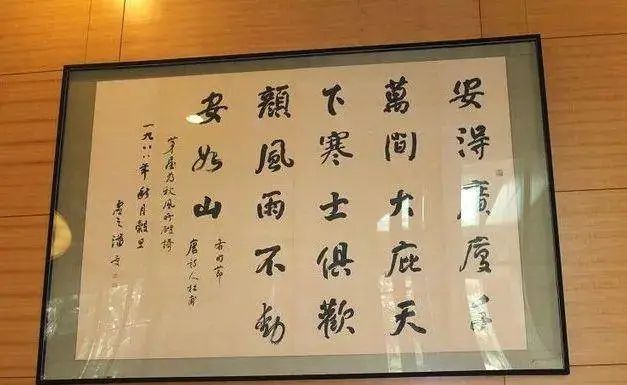 安得廣廈千
萬間大庇天
下寒士俱歡
顏風雨不動
安如山
唐詩人杜甫
茅屋为秋風所破歌
一九八八年月穀旦